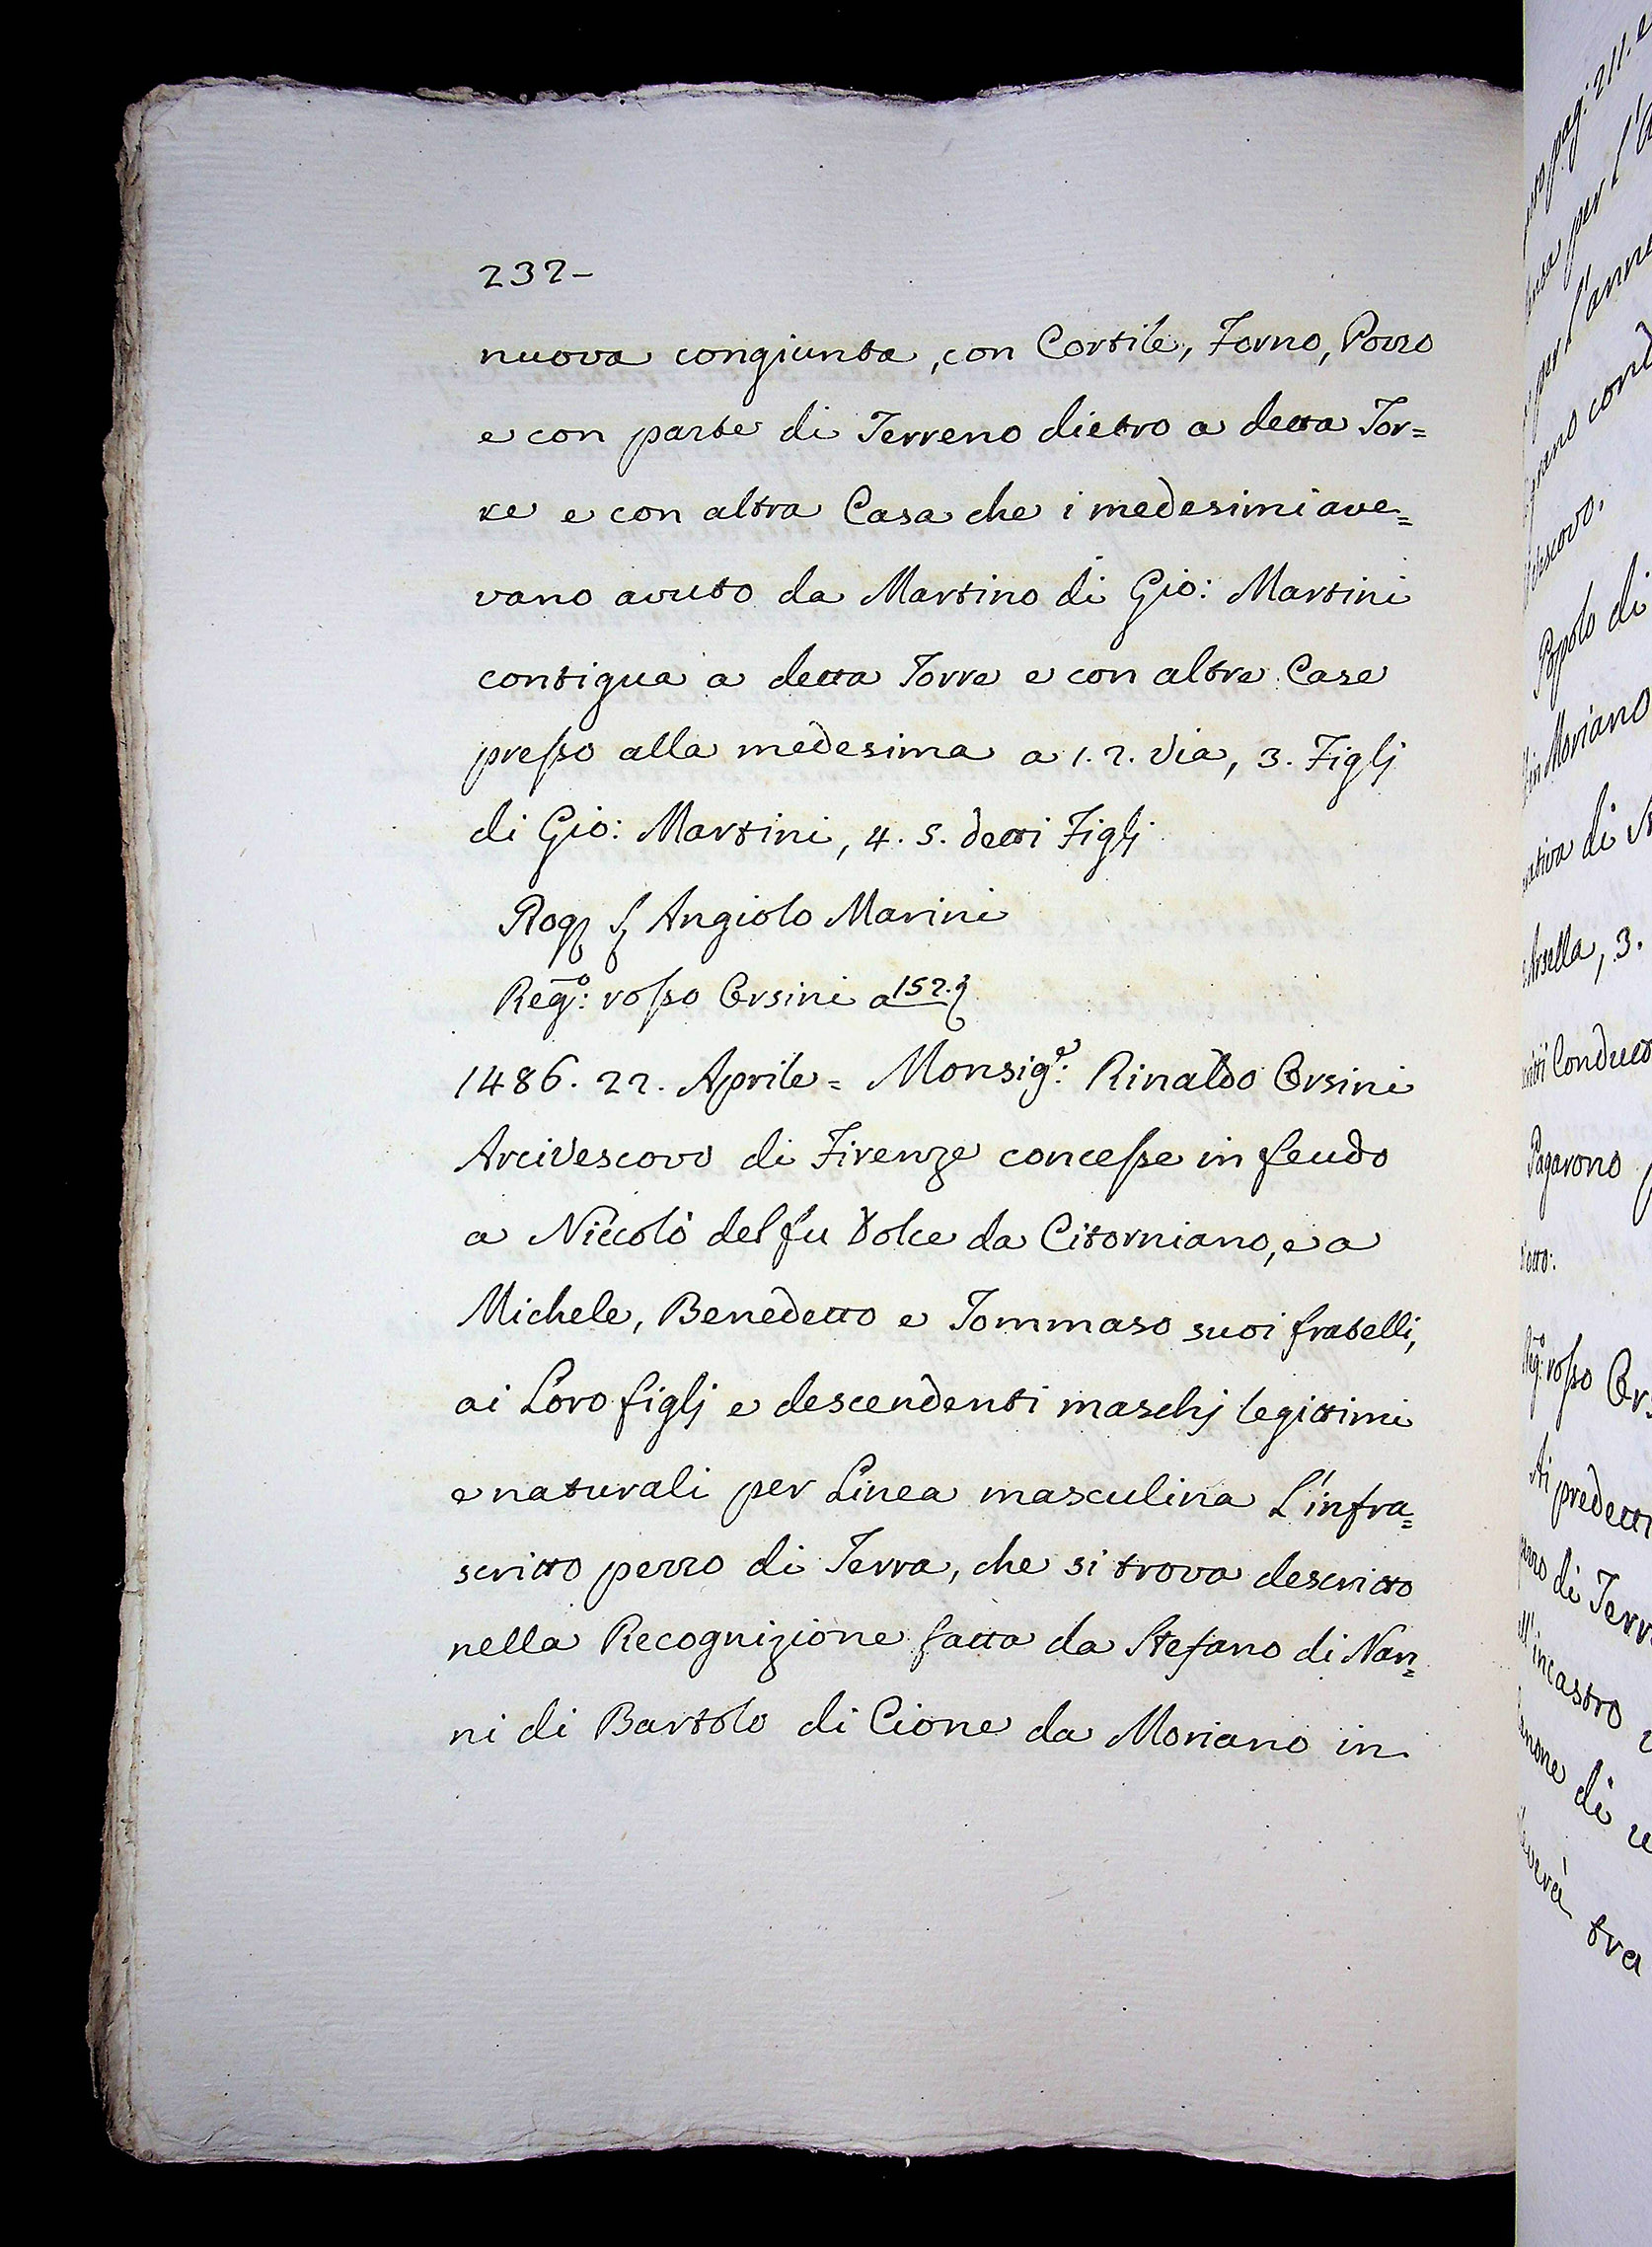 232-
nuova congiunta, con Cortile, Forno, Pozzo
e con parte di Terreno dietro a detta Tor=
re e con altra Casa che i medesimi ave=
vano avuto da Martino di Gio: Martini
contigua a detta Torre e con altre Case
presso alla medesima a 1. 2. Via, 3. Figlj
di Gio: Martini, 4. 5. detti Figlj
Rog Angiolo Marini
Reg.o: rosso Orsini a 152.
1486. 22. Aprile = Monsig.e: Rinaldo Orsini
Arcivescovo di Firenze concesse in feudo
a Niccolò del fu Dolce da Citorniano, e a
Michele, Benedetto e Tommaso suoi fratelli,
ai Loro figlj e descendenti maschj legittimi
e naturali per Linea masculina L'infra=
scritto pezzo di Terra, che si trova descritto
nella Recognizione fatta da Stefano di Nan=
ni di Bartolo di Cione da Moriano in
pag: 211. e
per l'
per l'anno
cond
Popolo di
in Moriano
di
3.
Conduc
Pagarono
Reg.o: rosso Ors
Ai predetti
di Terr
incastro
di
tra